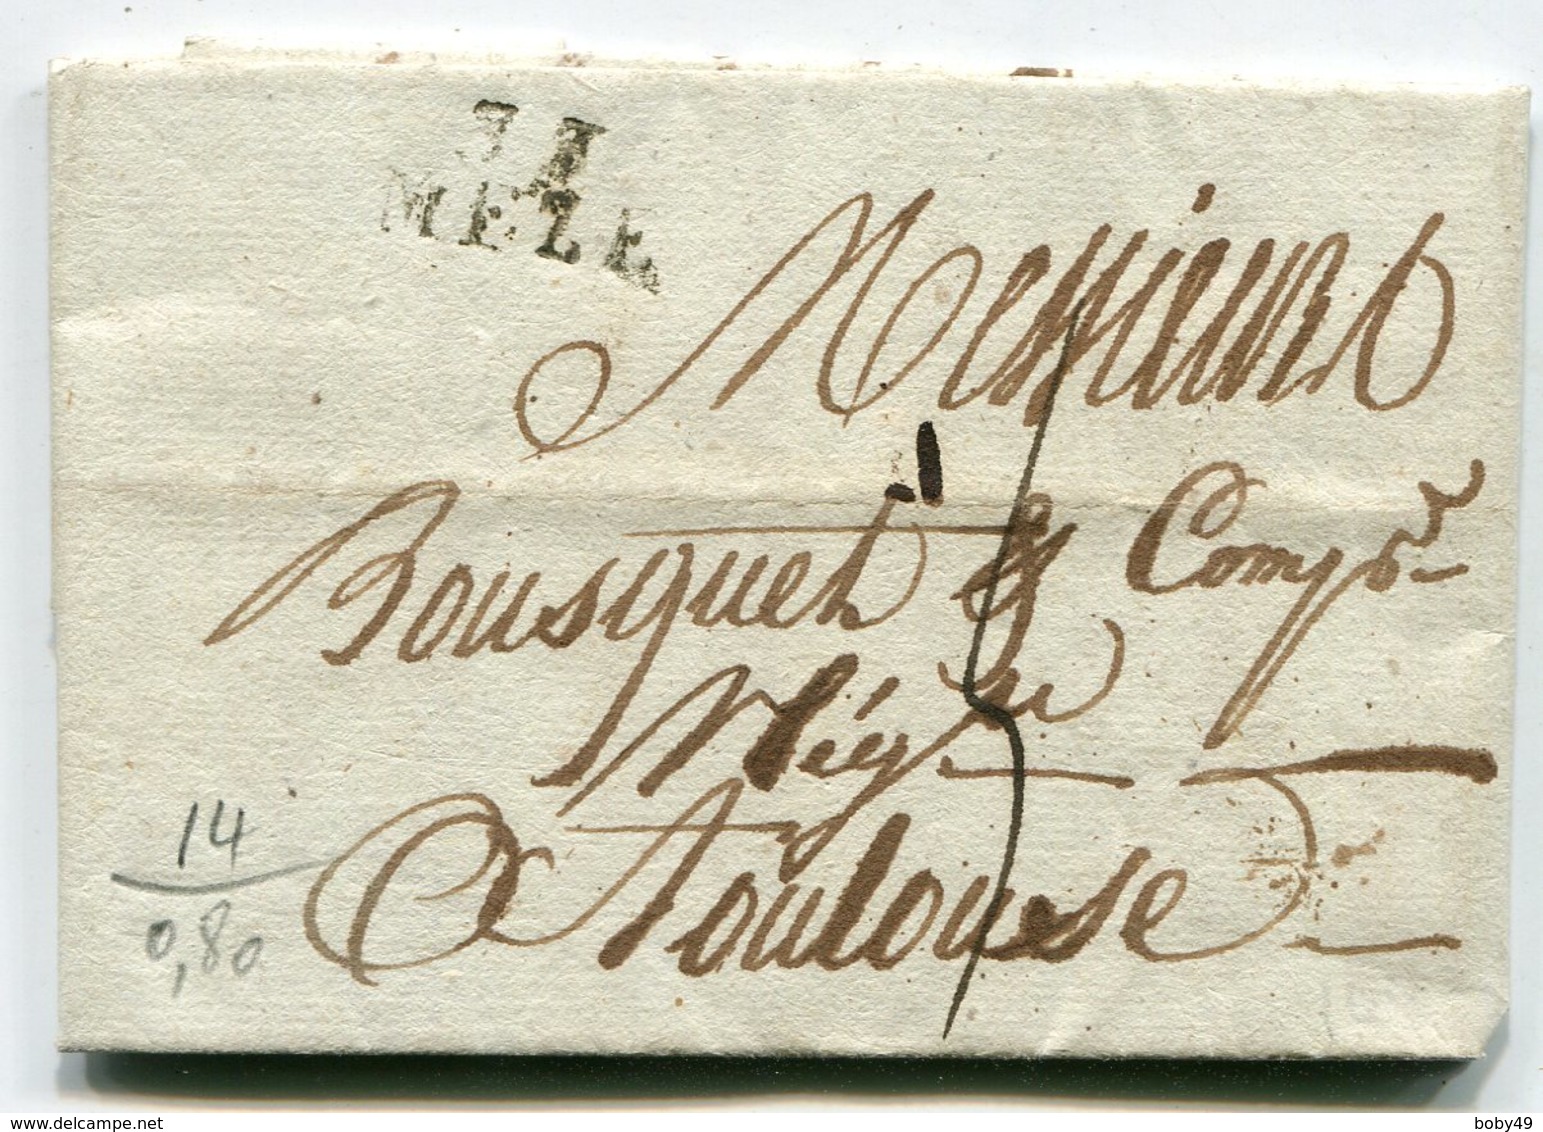 MEZE
Messieurs
Bousquet & Comp.
Nég.
A Toulouse
14
0,80
www.delcampe.net
boby49